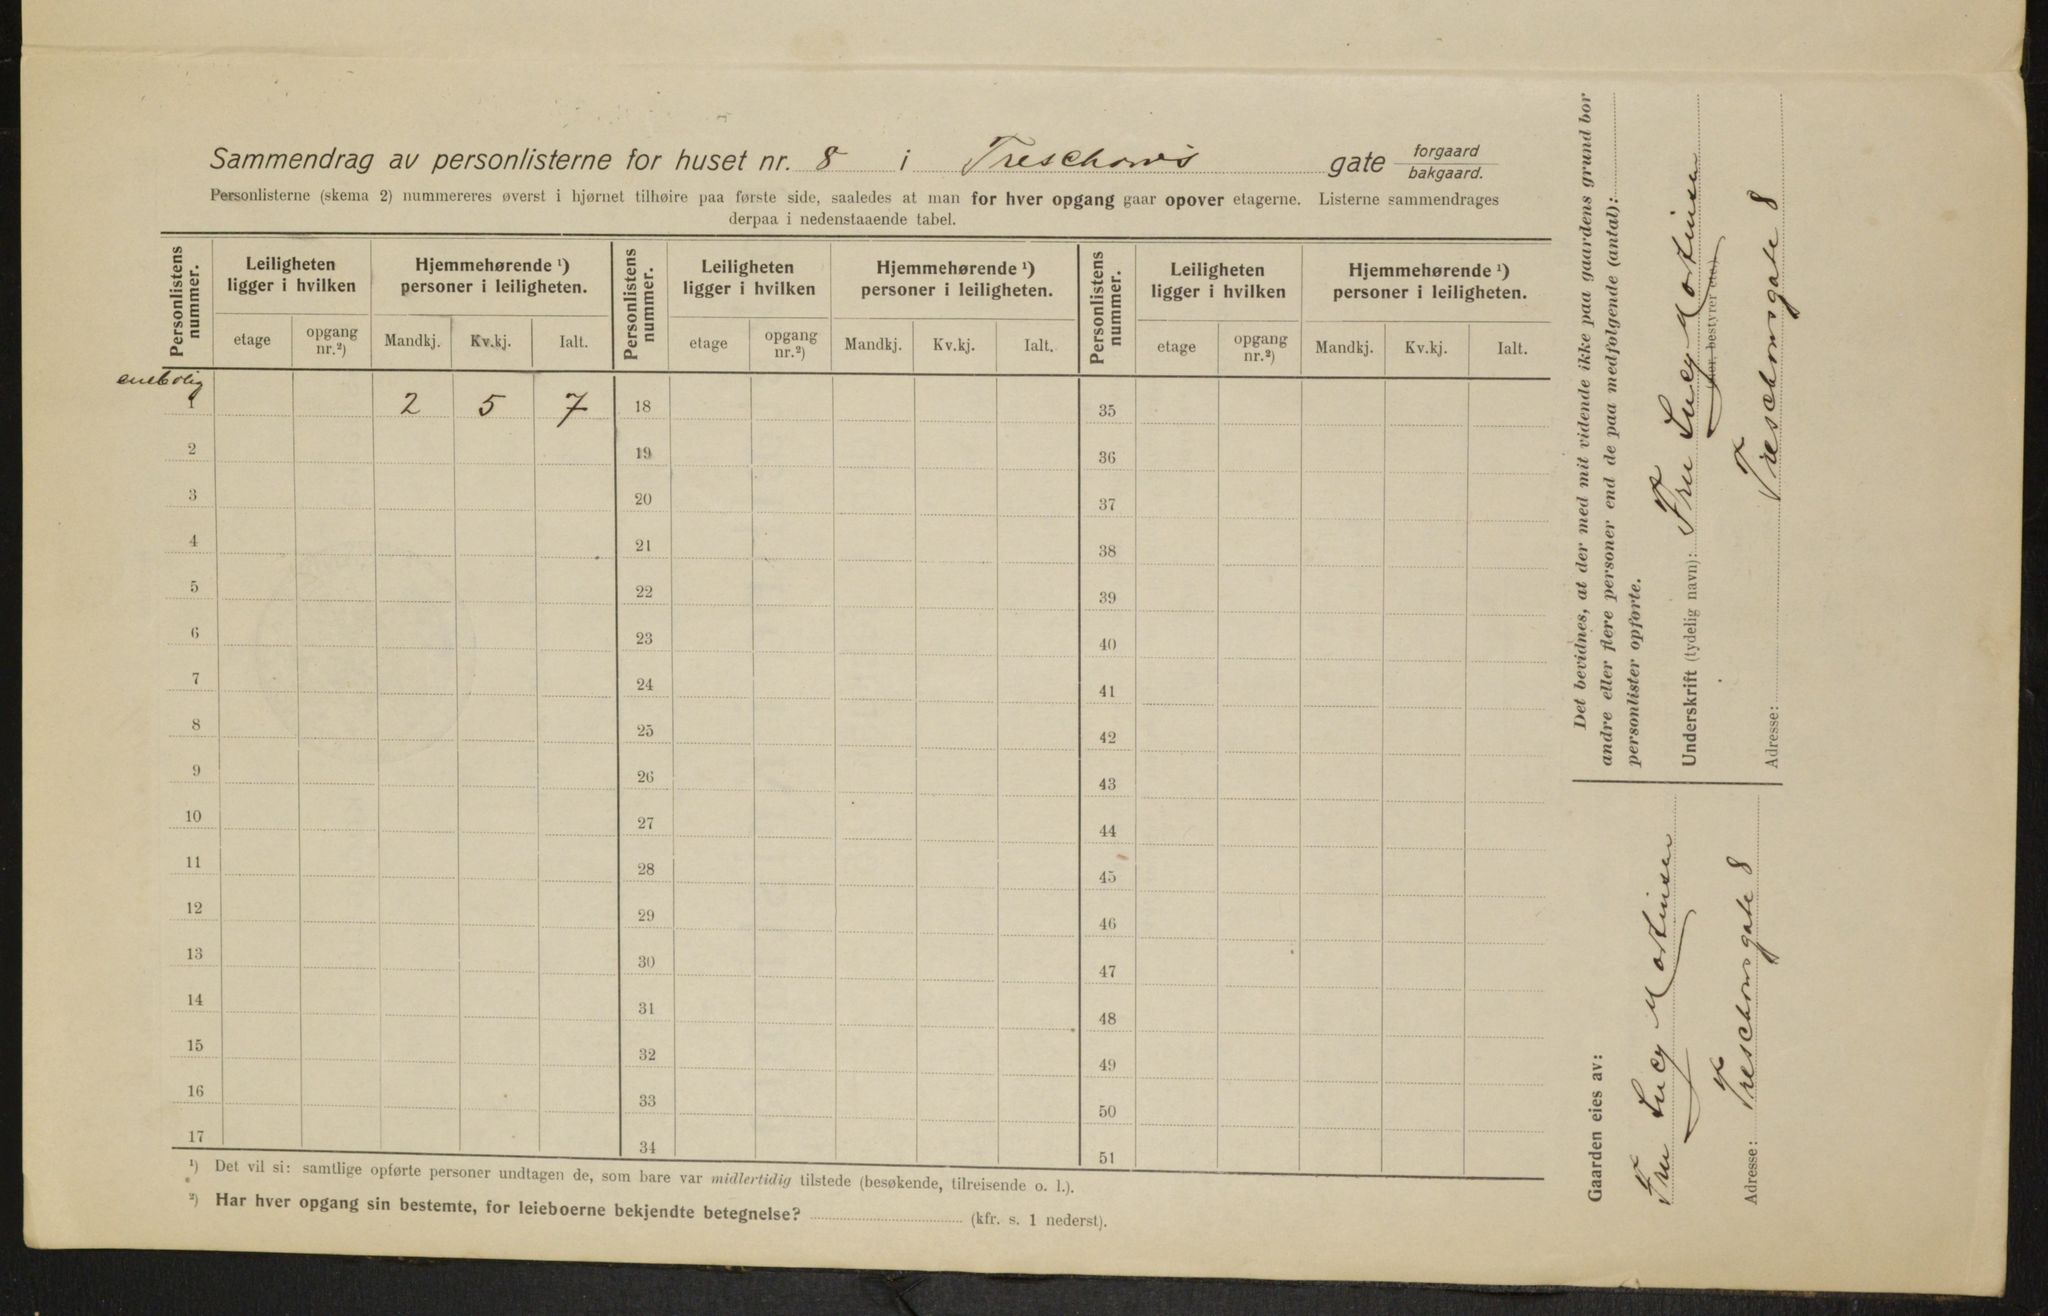 Sammendrag av personlisterne for huset nr. 8 i Treschows gate forgaard
bakgaard.
Personlisterne (skema 2) nummereres øverst i hjørnet tilhøire paa første side, saaledes at man for hver opgang gaar opover etagerne. Listerne sammendrages
derpaa i nedenstaaende tabel.
Personlistens nummer. Leiligheten ligger i hvilken Hjemmehørende ¹) personer i leiligheten. Personlistens nummer. Leiligheten ligger i hvilken Hjemmehørende ¹) personer i leiligheten. Personlistens nummer. Leiligheten ligger i hvilken Hjemmehørende ¹) personer i leiligheten.
etage opgang nr.²) Mandkj. Kv.kj. Ialt. etage opgang nr.²) Mandkj. Kv.kj. Ialt. etage opgang nr.²) Mandkj. Kv.kj. Ialt.
enebolig
1 2 5 7 18 35
2 19 36
3 20 37
4 21 38
5 22 39
6 23 40
7 24 41
8 25 42
9 26 43
10 27 44
11 28 45
12 29 46
13 30 47
14 31 48
15 32 49
16 33 50
17 34 51
¹) Det vil si: samtlige opførte personer undtagen de, som bare var midlertidig tilstede (besøkende, tilreisende o. l.).
²) Har hver opgang sin bestemte, for leieboerne bekjendte betegnelse? (kfr. s. 1 nederst).
Det bevidnes, at der med mit vidende ikke paa gaardens grund bor
andre eller flere personer end de paa medfølgende (antal):
personlister opførte.
Underskrift (tydelig navn): Fru Lucy Mortinsen
(eier, bestyrer etc.)
Adresse: Treschowsgate 8
Gaarden eies av:
Fru Lucy Mortinsen
Adresse: Treschowsgate 8